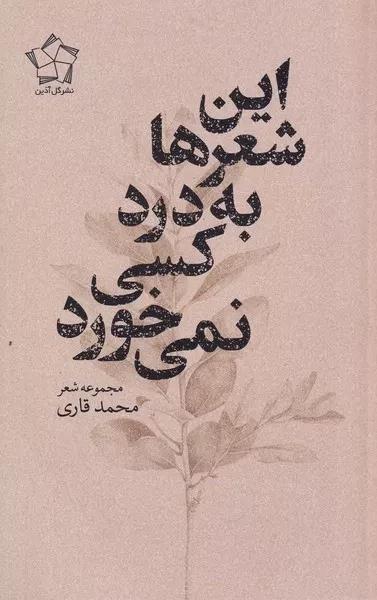 نشر گل آذین
این
شعرها
به درد
کسی
نمی‌خورد
مجموعه شعر
محمد قاری